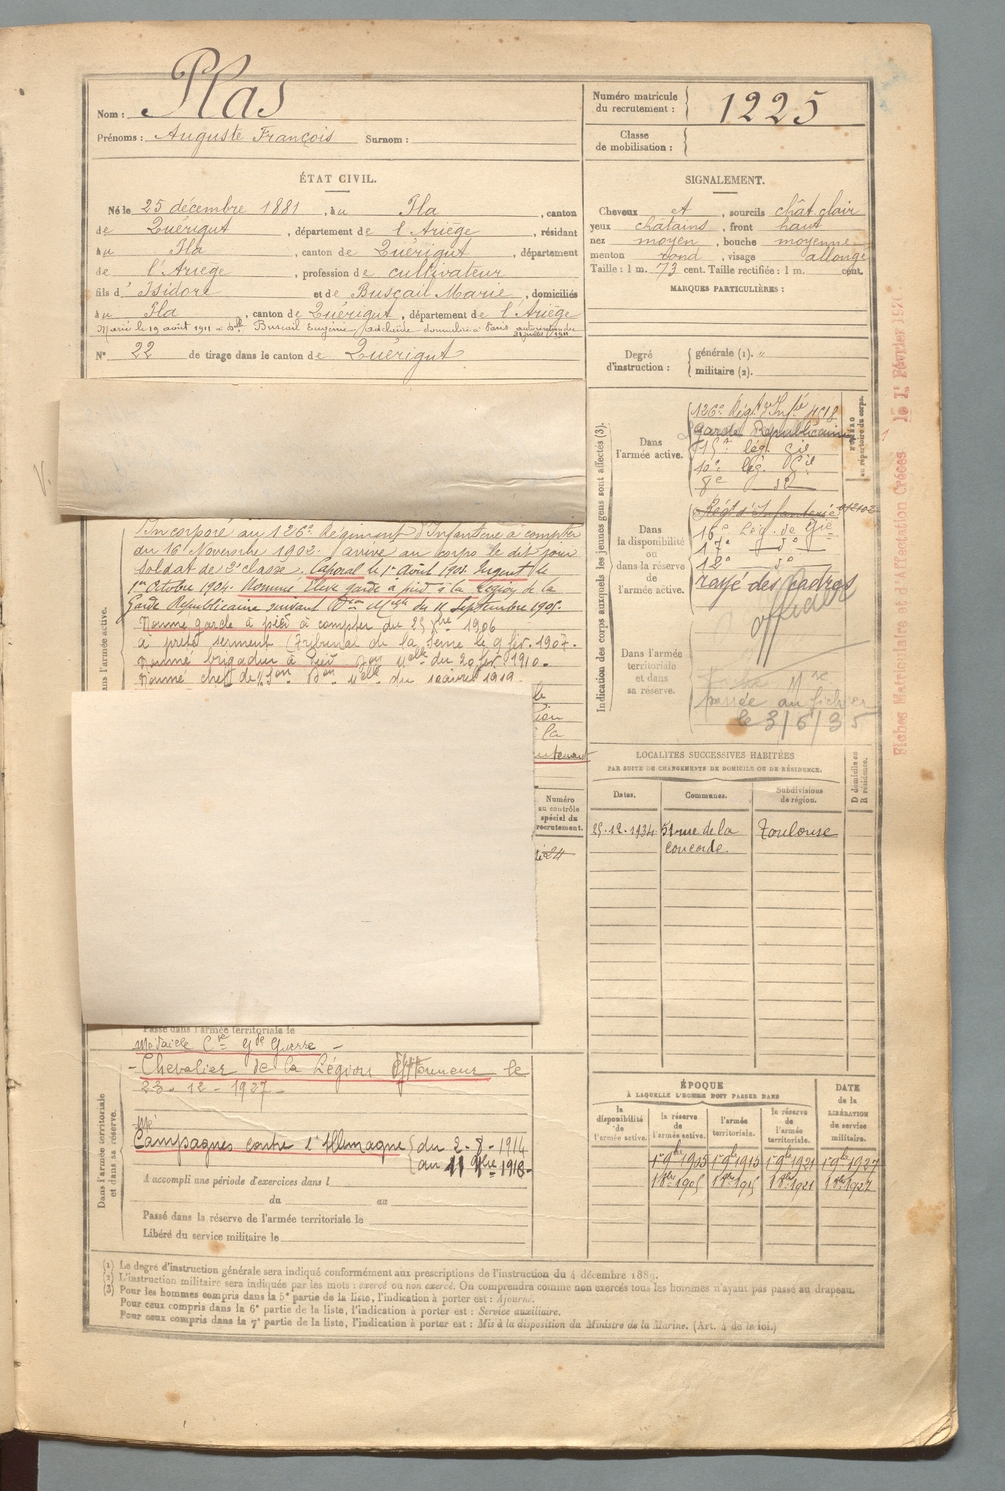 Nom : Plas
Prénoms : Auguste François Surnom :
Numéro matricule du recrutement : 1225
Classe de mobilisation :
ÉTAT CIVIL.
Né le 25 décembre 1881, à u Pla, canton
de Quérigut, département de l'Ariège, résidant
à u Pla, canton de Quérigut, département
de l'Ariège, profession de cultivateur
fils d' Isidore et de Buscail Marie, domiciliés
à u Pla, canton de Quérigut, département de l'Ariège
Marié le 19 août 1911 à Dlle Buscail Eugénie Adélaïde domiciliée à Paris
N° 22 de tirage dans le canton de Quérigut
SIGNALEMENT.
Cheveux et, sourcils chât. clair
yeux châtains, front haut
nez moyen, bouche moyenne
menton rond, visage allongé
Taille : 1 m. 73 cent. Taille rectifiée : 1 m. cent.
MARQUES PARTICULIÈRES :
Degré d'instruction : générale (1). "
militaire (2).
Incorporé au 126e Régiment d'Infanterie à compter
du 16 Novembre 1902. Arrivé au corps le dit jour
soldat de 2e classe. Caporal le 1er Août 1904. Sergent le
1er Octobre 1904. Nommé élève garde à pied à la Légion de la
Garde Républicaine suivant Don Mlle du 11 Septembre 1905.
Nommé garde à pied à compter du 25 1906
a prêté serment (Tribunal de la Seine le 9 fév. 1907.
Nommé brigadier à pied Don Mlle du 20 fév. 1910.
Nommé chef de Son Don Mlle du 10 avril 1919
Dans l'armée active.
Numéro au contrôle spécial du recrutement.
Passé dans l'armée territoriale le
Médaille Cve Gde Guerre -
- Chevalier de la Légion d'Honneur le
23 - 12 - 1927 -
Campagnes contre l'Allemagne du 2 - 8 - 1914
au 11 9bre 1918 -
A accompli une période d'exercices dans l
du au
Passé dans la réserve de l'armée territoriale le
Libéré du service militaire le
Dans l'armée territoriale et dans sa réserve.
Indication des corps auxquels les jeunes gens sont affectés (3).
NUMÉRO au répertoire du corps.
Dans l'armée active.
126e Régt d'Infie
Garde Républicaine
15e lég. Gie
10e lég. Gie
8e do
Dans la disponibilité ou dans la réserve de l'armée active.
Régt d'Infanterie
16e Lég. de Gie
17e do
12e do
rayé des Cadres
officier
Dans l'armée territoriale et dans sa réserve.
Fiche Mle
passée au fichier
le 3/6/35
LOCALITÉS SUCCESSIVES HABITÉES
PAR SUITE DE CHANGEMENTS DE DOMICILE OU DE RÉSIDENCE.
Dates. Communes. Subdivisions de région. D domicile ou R résidence.
25-12-1934 51 rue de la Concorde. Toulouse
ÉPOQUE
À LAQUELLE L'HOMME DOIT PASSER DANS
la disponibilité de l'armée active. la réserve de l'armée active. l'armée territoriale. la réserve de l'armée territoriale. DATE de la LIBÉRATION de service militaire.
1er 9bre 1905 1er 9bre 1915 1er 9bre 1921 1er 9bre 1927
1er 8bre 1905 1er 8bre 1915 1er 8bre 1921 1er 8bre 1927
Fiches Matriculaire et d'Affectation Créées le 1r Février
(1) Le degré d'instruction générale sera indiqué conformément aux prescriptions de l'instruction du 4 décembre 1889.
(2) L'instruction militaire sera indiquée par les mots : exercé ou non exercé. On comprendra comme non exercés tous les hommes n'ayant pas passé au drapeau.
(3) Pour les hommes compris dans la 5e partie de la liste, l'indication à porter est : Ajourné.
Pour ceux compris dans la 6e partie de la liste, l'indication à porter est : Service auxiliaire.
Pour ceux compris dans la 7e partie de la liste, l'indication à porter est : Mis à la disposition du Ministre de la Marine. (Art. 4 de la loi.)